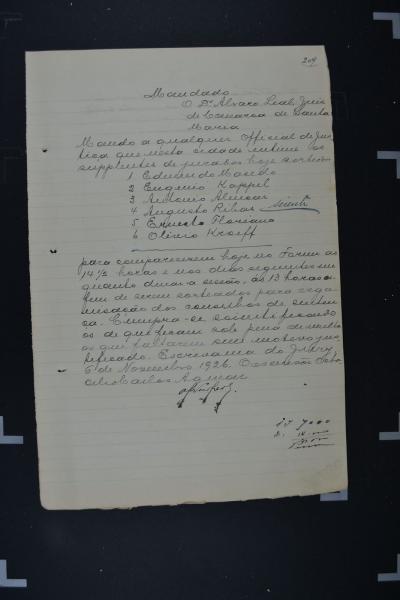 209
Mandado
O Dr Alvaro Leal, Juiz
de Comarca de Santa
Maria
Mando a qualquer Official de Jus-
tiça que nesta cidade intime os
supplentes de jurados hoje sorteados
1 Edmundo Macedo
2 Eugenio Kappel
3 Antonio Alencar
4 Augusto Ribas
5 Ernesto Floriano
6 Olivio Kroeff
para comparecerem hoje no Forum as
14 ½ horas e nos dias seguintes em
quanto durar a sessão, ás 13 horas a
fim de serem sorteados para orga
nisação dos conselhos de senten
ça. Cumpra-se scientificando
os de que ficam sob pena de multa
os que faltarem sem motivo jus
tificado. Escrivania do Jury,
6 de Novembro 1926. O escrivão